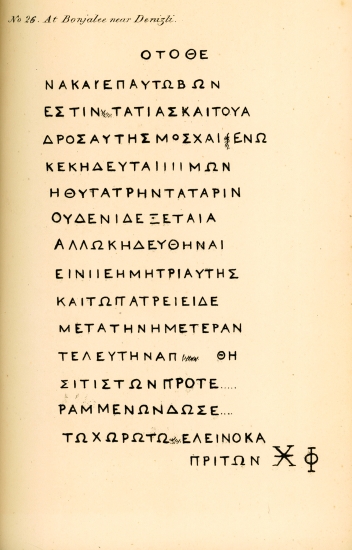 No 26. At Bonjalee near Denizli.
ΟΤΟΘΕ
ΝΑΚΑΙΕΠΑΥΤΩΒΩΝ
ΕΣΤΙΝ ΤΑΤΙΑΣΚΑΙΤΟΥΑ
ΔΡΟΣΑΥΤΗΣΜΟΣΧΑΙ ΕΝΩ
ΚΕΚΗΔΕΥΤΑΙΙΙΙΜΩΝ
ΗΘΥΓΑΤΡΗΝΤΑΤΑΡΙΝ
ΟΥΔΕΝΙΔΕΞΕΤΑΙΑ
ΑΛΛΩΚΗΔΕΥΘΗΝΑΙ
ΕΙΝΙΙΕΗΜΗΤΡΙΑΥΤΗΣ
ΚΑΙΤΩΠΑΤΡΕΙΕΙΔΕ
ΜΕΤΑΤΗΝΗΜΕΤΕΡΑΝ
ΤΕΛΕΥΤΗΝΑΠ ΘΗ
ΣΙΤΙΣΤΩΝΠΡΟΤΕ.....
ΡΑΜΜΕΝΩΝΔΩΣΕ....
ΤΩΧΩΡΩΤΩ ΕΛΕΙΝΟΚΑ
ΠΡΙΤΩΝ Φ